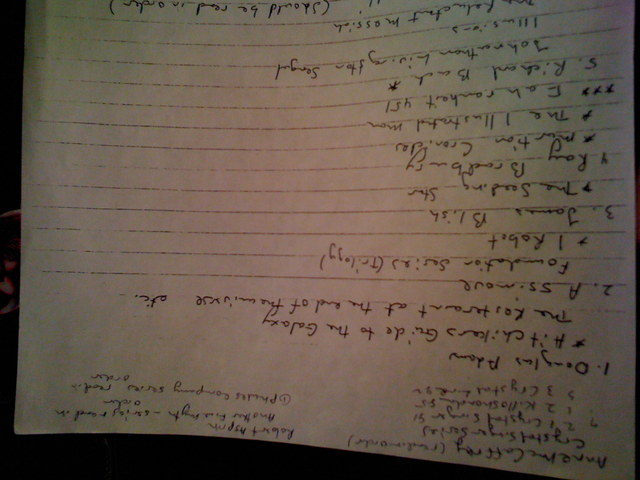 Anne McCaffrey (read in order)
Crystal Singer Series
1 Crystal Singer
2 Killashandra
3 Crystal Line
Robert Asprin
Another fine Myth - series read in
order
Phules Company series read in
order
1. Douglas Adams
* Hitchikers Guide to the Galaxy
The Resterant at the end of the universe etc.
2. Assimove
Foundation Series (Trilogy)
* I Robot
3. James Blish
* The Seeding Star
4 Ray Bradbury
* Martian Cronicles
* The Illustrated man
*** Fahranheit 451 *
5. Richard Bach
Johnathan Livingston Seagul
Illusions
Reluctant Messiah
(Should be read in order)